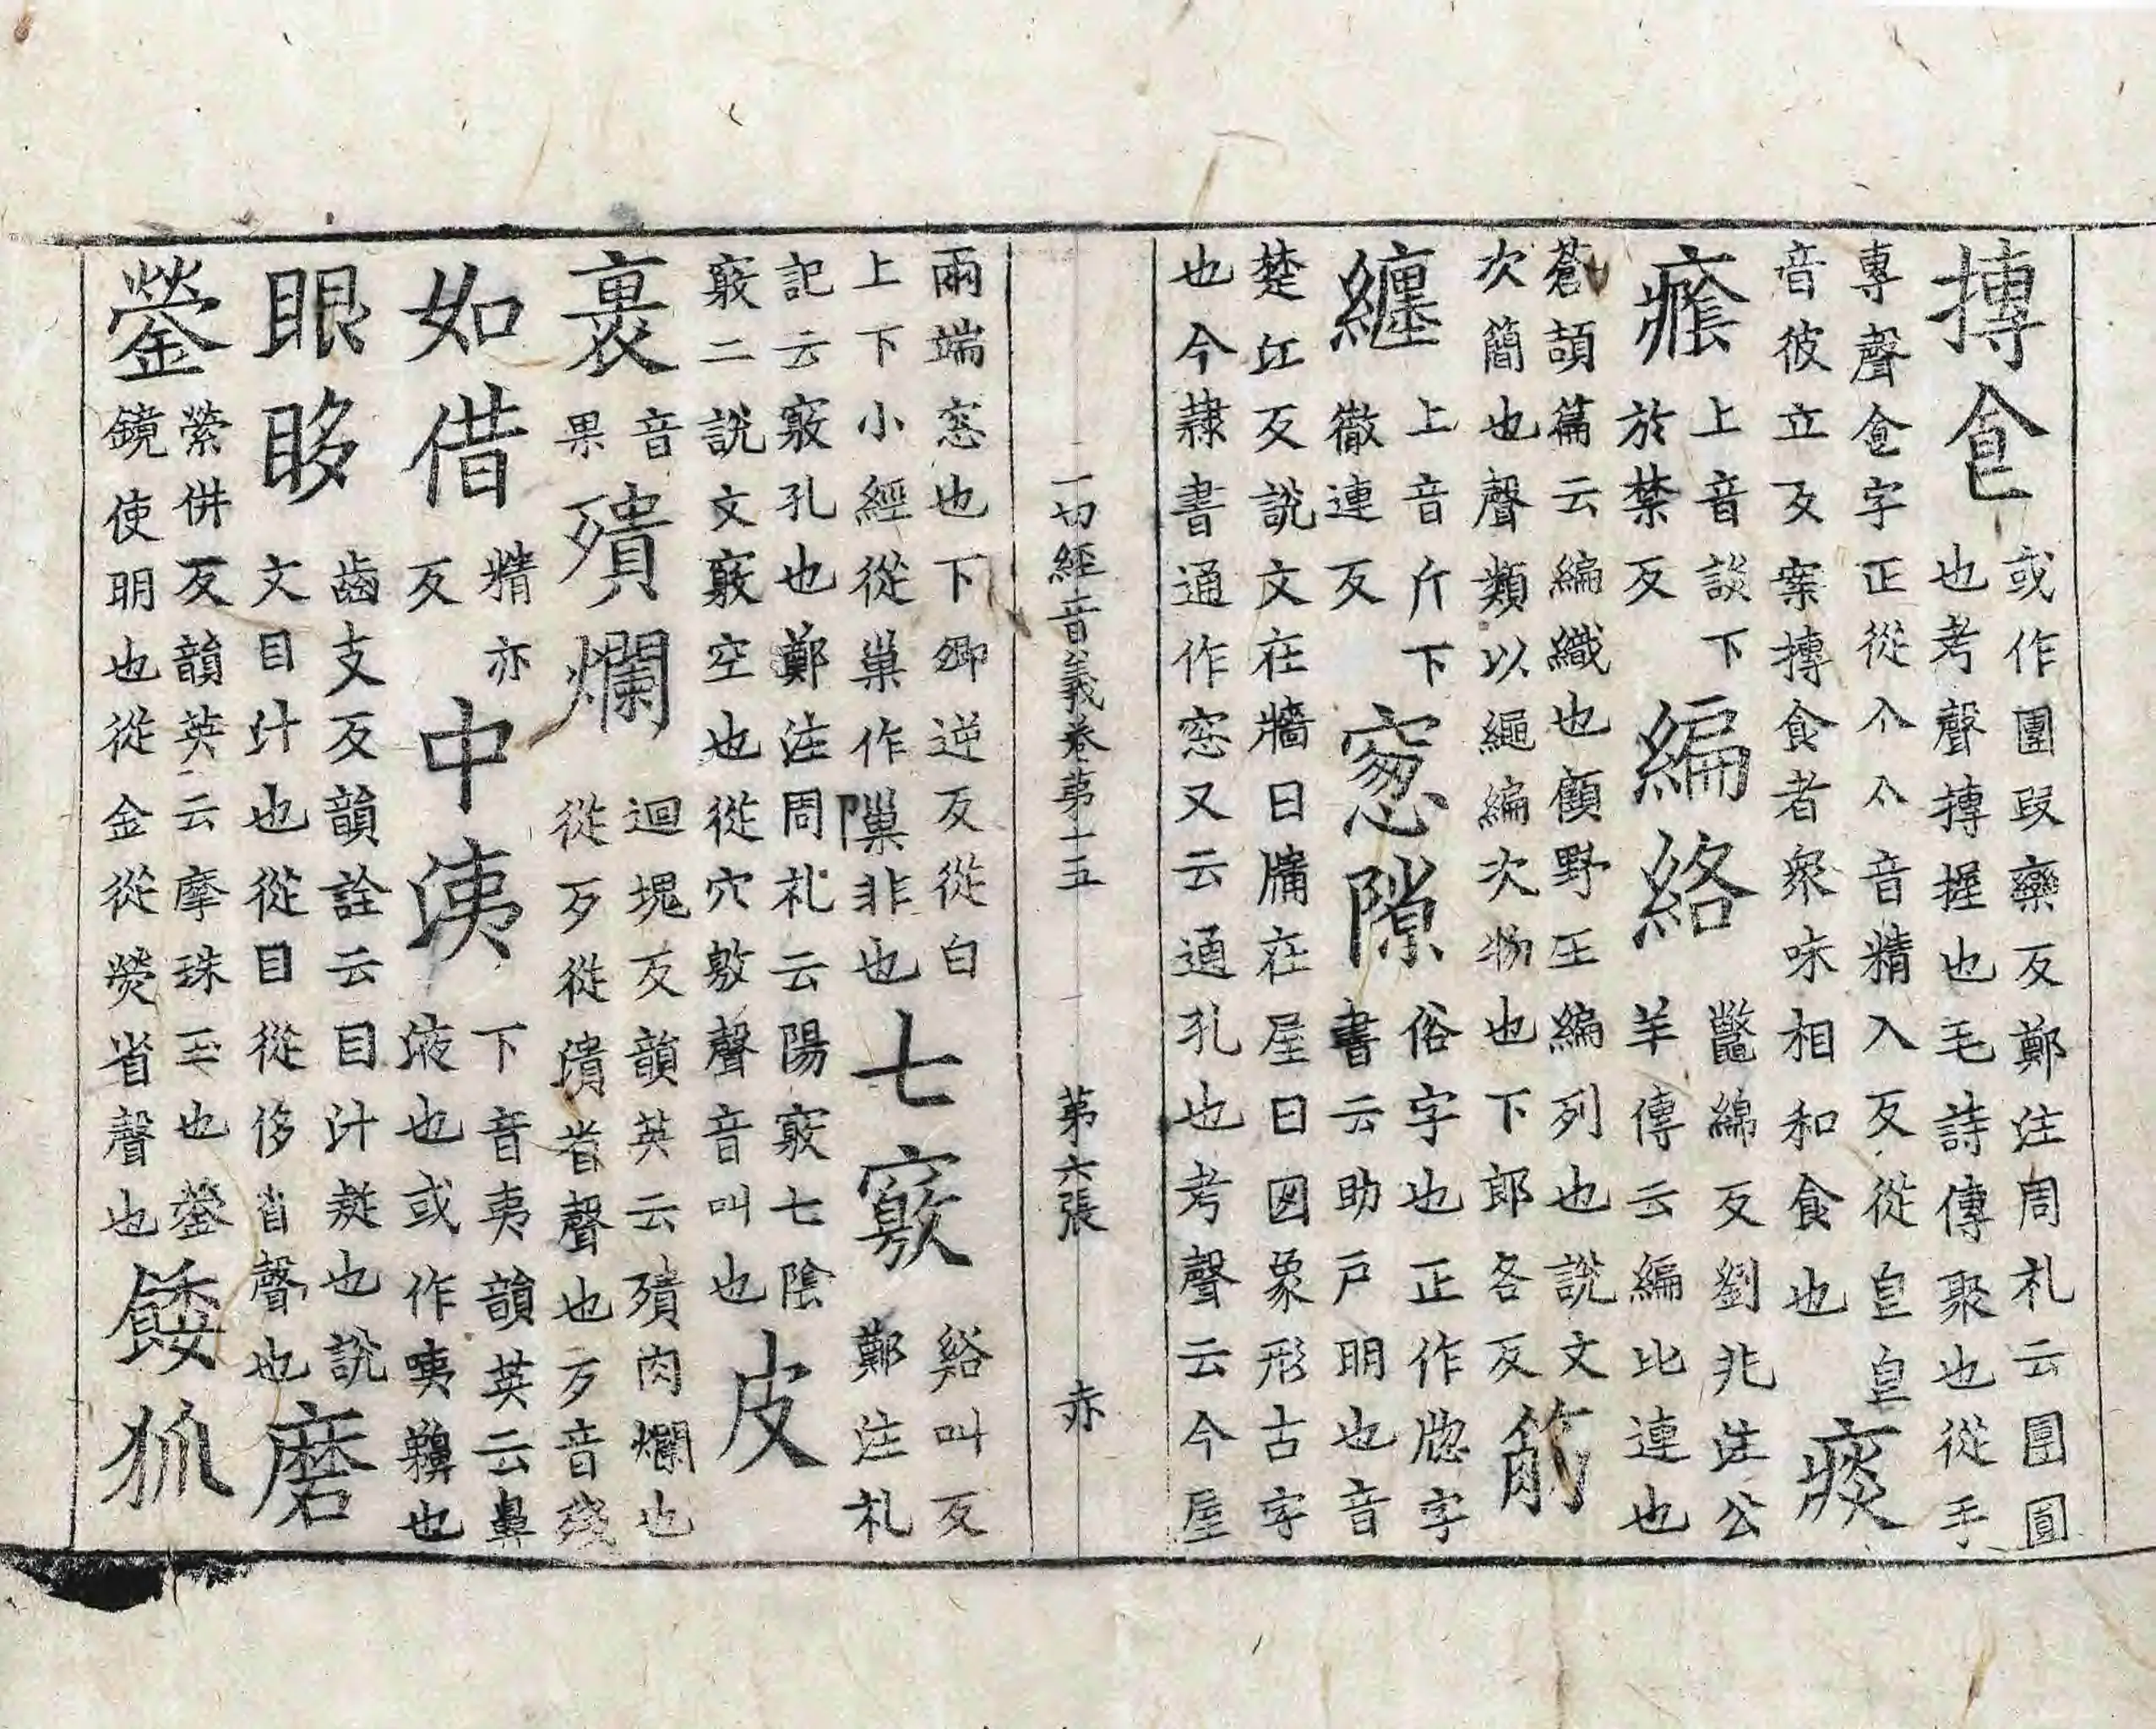 摶食或作團叚欒反鄭注周札云團圓
也考聲摶握也毛詩傳聚也從手
專聲食字正從亼亼音精入反從皀皀
音彼立反案摶食者衆味相和食也痰
癊上音談下於禁反編絡鼈綿反劉兆注公
羊傳云編比連也
蒼頡篇云編織也顧野王編列也說文
次簡也聲類以繩編次物也下郎各反筋
纏上音斤下徹連反窓隙俗字也正作牕字
書云助戶明也音
楚江反說文在牆曰牖在屋曰囱象形古字
也今隷書通作窓又云通孔也考聲云今屋
一切經音義卷第十五 第六張 赤
兩端窓也下卿逆反從白
上下小經從巢作隟非也七竅谿叫反
鄭注札
記云竅孔也鄭注周札云陽竅七陰
竅二說文竅空也從穴敫聲音叫也皮
裹音果殨爛迴塊反韻英云殨肉爛也
從歹從潰省聲也歹音殘
如借精亦反中洟下音夷韻英云鼻
液也或作咦䶏也
眼眵齒支反韻詮云目汁凝也說
文目汁也從目從侈省聲也磨
鎣縈併反韻英云摩珠玉也鎣
鏡使明也從金從熒省聲也餧狐